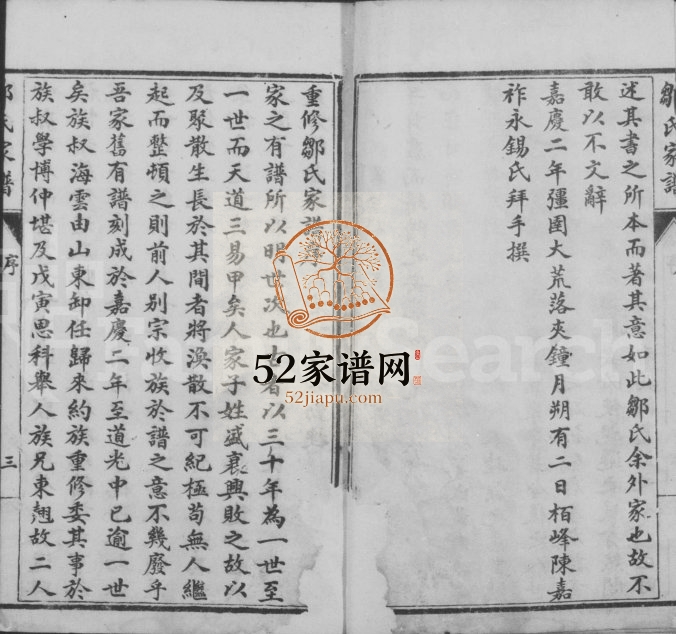 鄒氏家譜
述其書之所本而著其意如此鄒氏余外家也故不
敢以不文辭
嘉慶二年彊圉大荒落夾鐘月朔有二日栢峰陳嘉
祚永錫氏拜手撰
重修鄒氏家譜
家之有譜所以明世次也古者以三十年為一世至
一世而天道三易甲矣人家子姓盛衰興敗之故以
及聚散生長於其間者將渙散不可紀極苟無人繼
起而整頓之則前人別宗收族於譜之意不幾廢乎
吾家舊有譜刻成於嘉慶二年至道光中已逾一世
矣族叔海雲由山東卸任歸來約族重修委其事於
族叔學博仲堪及戊寅恩科舉人族兄東翹故二人
氏家譜
序
三
52家谱网
52jiapu.com
Search